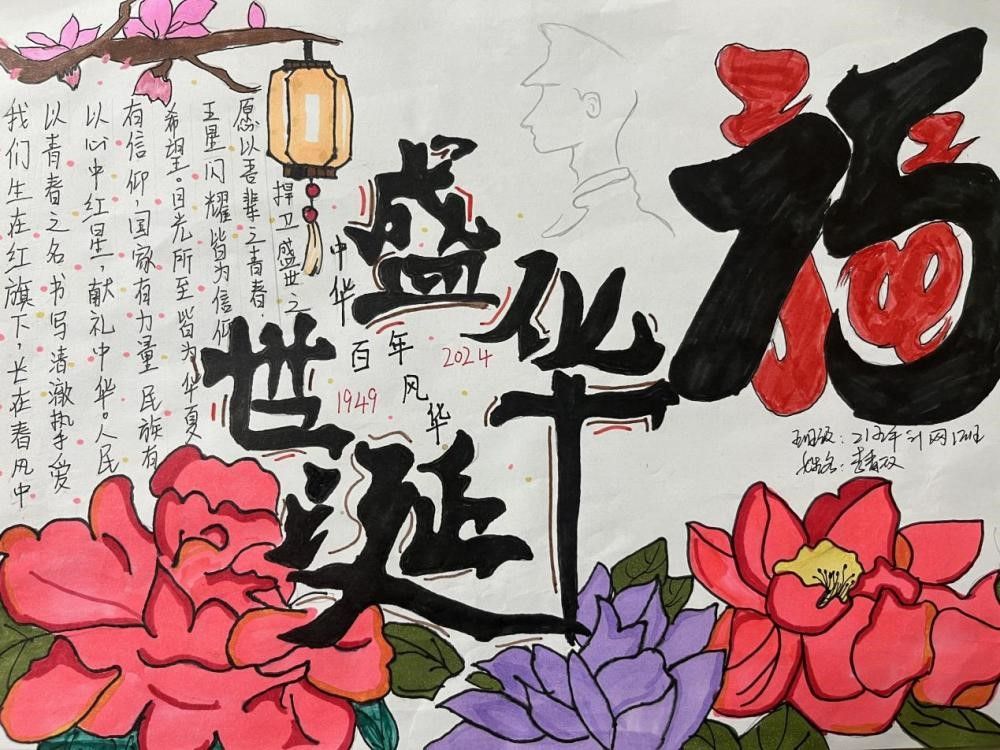 我们生在红旗下,长在春风中
以青春之名书写清澈挚爱
以心中红星,献礼中华。人民
有信仰,国家有力量 民族有
希望。目光所至皆为华夏
五星闪耀皆为信仰
愿以吾辈之青春.
捍卫盛世之
中华
盛世华诞
百年风华
1949
2024
福
班级:21五年计网12班
姓名: